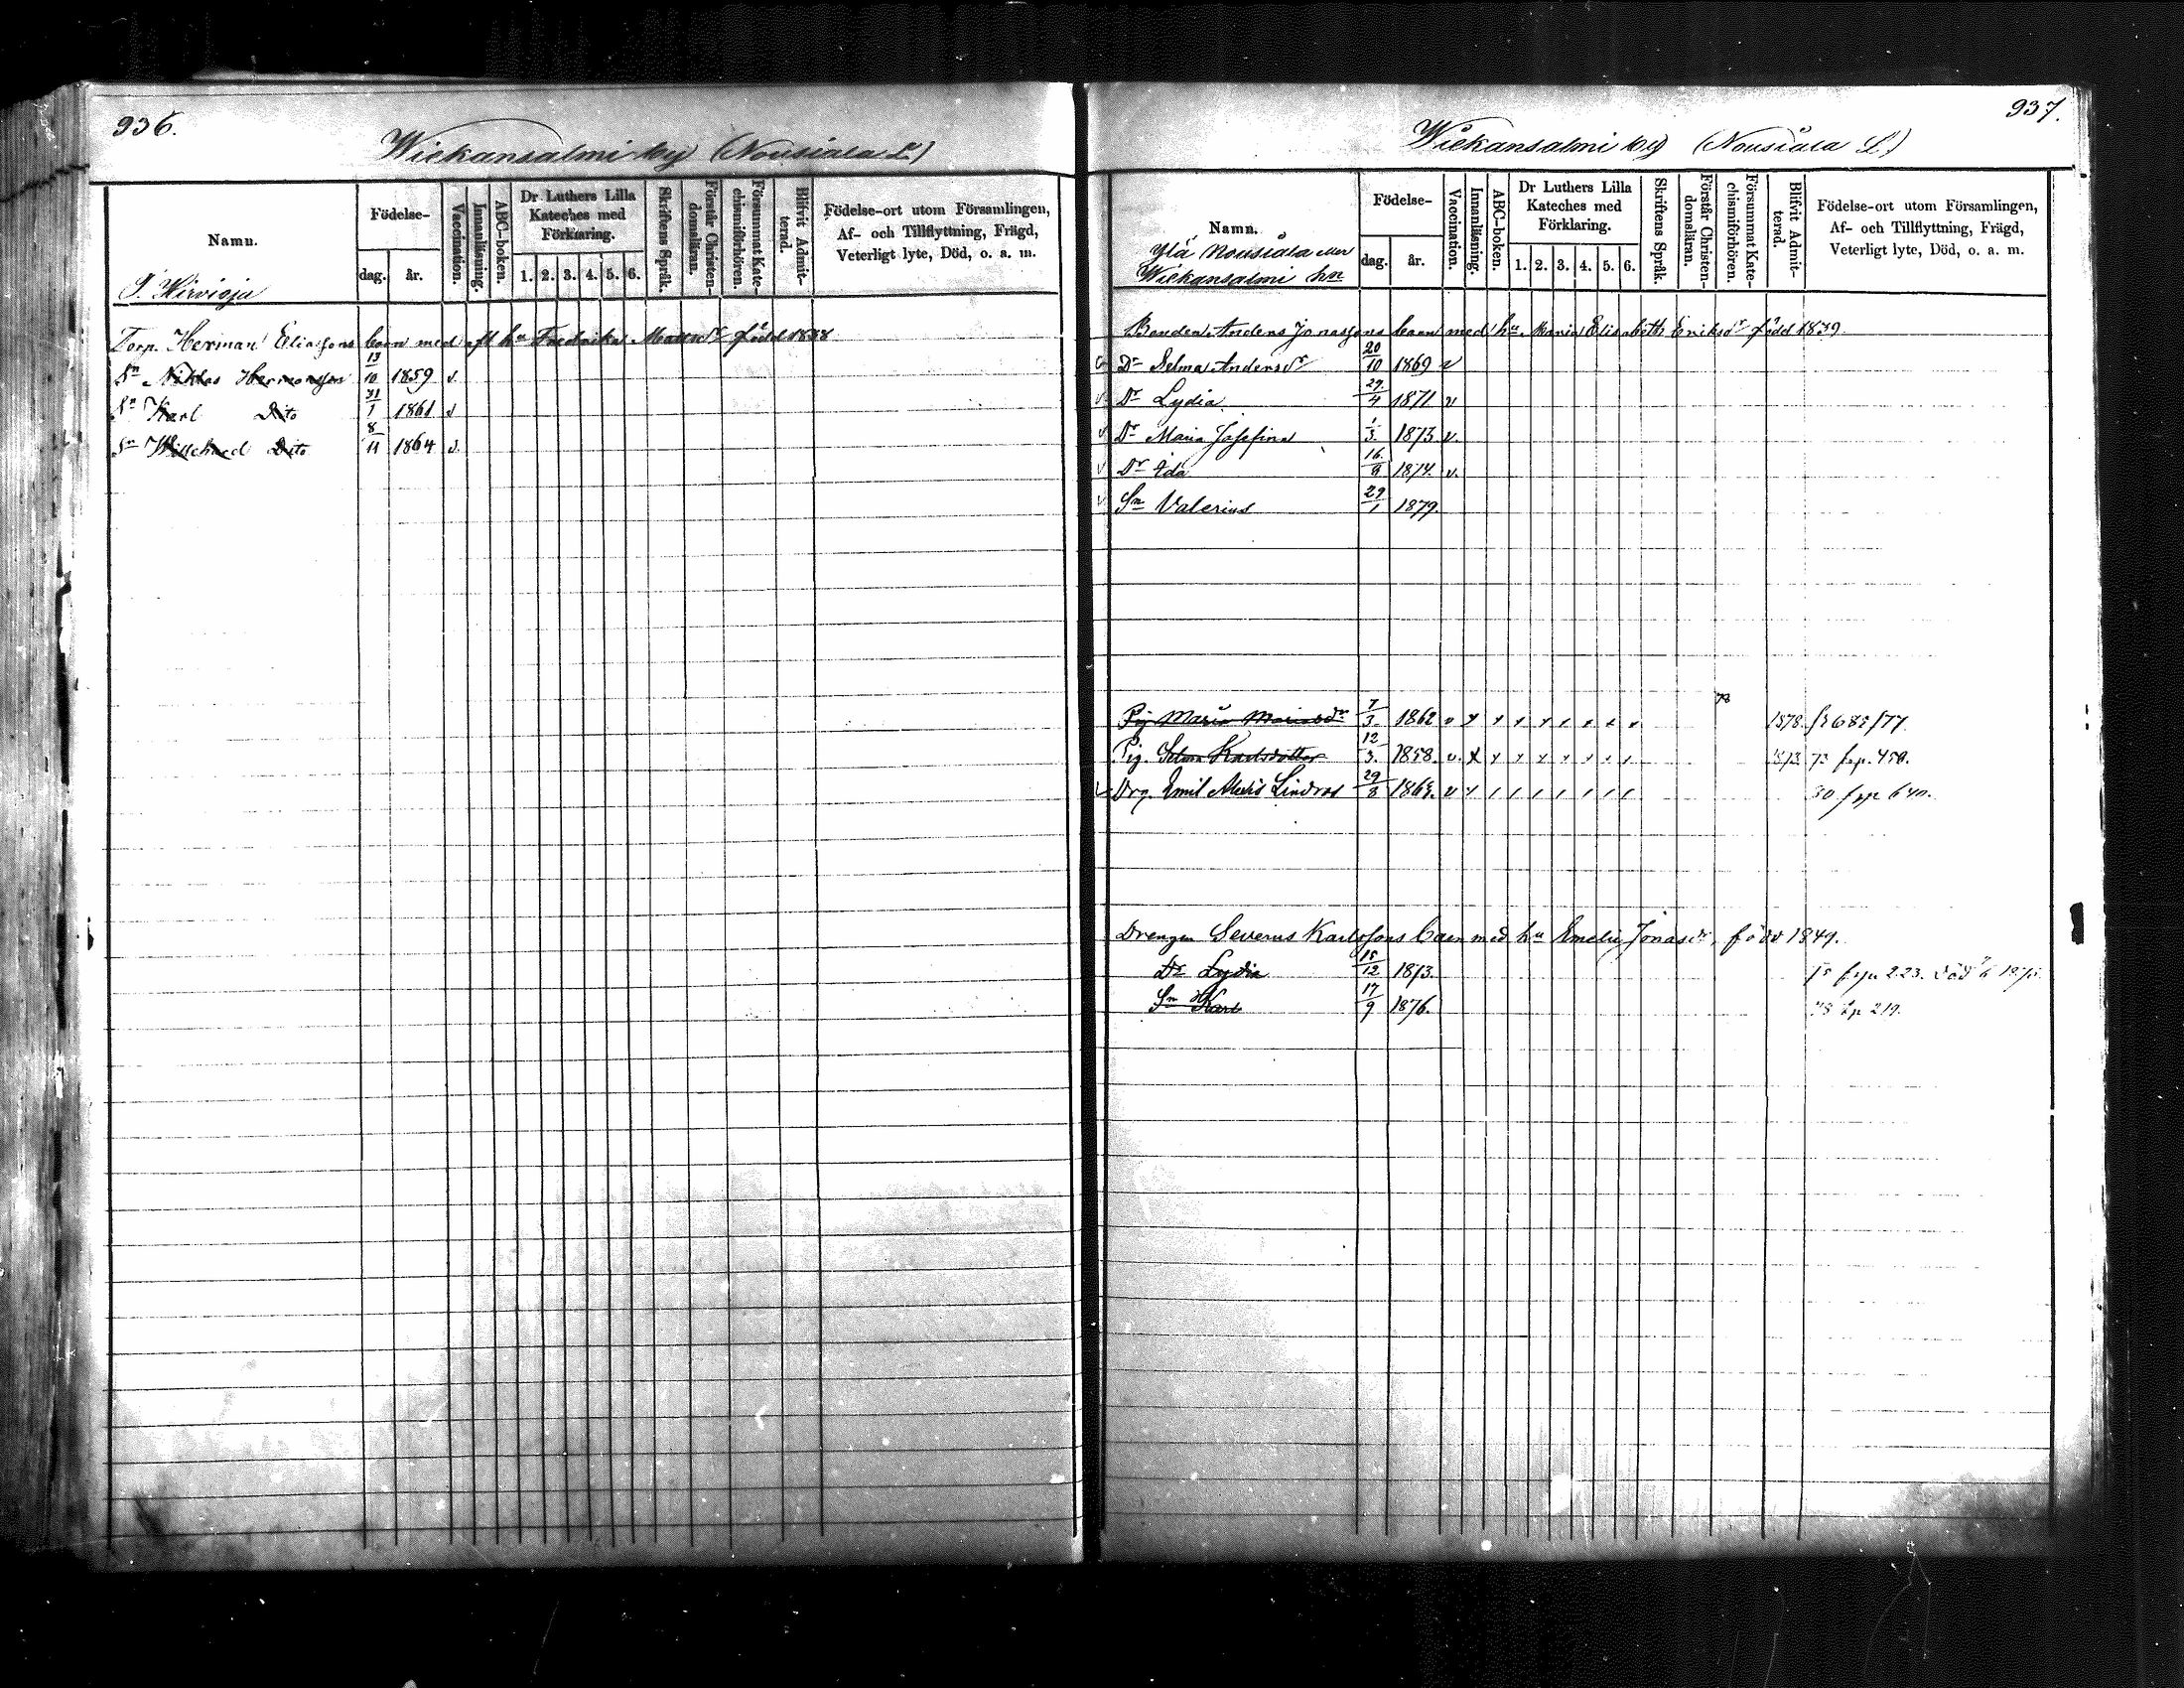 936.
Wiekansalmi by (Nousiala L)
Namn.
Födelse-
dag.
år.
Vaccination.
Innanläsning.
ABC-boken.
Dr Luthers Lilla Kateches med Förklaring.
1. 2. 3. 4. 5. 6.
Skriftens Språk.
Förstår Christendomsläran.
Försummat Katechismiförhören.
Blifvit Admitterad.
Födelse-ort utom Församlingen, Af- och Tillflyttning, Frägd, Veterligt lyte, Död, o. a. m.
Hirvioja
Torp. Herman Eliassons barn med afl hu Fredrika Mattsdr född 1838
Sn Niklas Hermansson 13/10 1859 v.
Sn Karl Dito 31/1 1861 v
Sn Willehard Dito 8/11 1864 v.
937.
Wiekansalmi by (Nousiala L)
Namn.
Ylä Nousiala eller
Wiekansalmi hn
Födelse-
dag.
år.
Vaccination.
Innanläsning.
ABC-boken.
Dr Luthers Lilla Kateches med Förklaring.
1. 2. 3. 4. 5. 6.
Skriftens Språk.
Förstår Christendomsläran.
Försummat Katechismiförhören.
Blifvit Admitterad.
Födelse-ort utom Församlingen, Af- och Tillflyttning, Frägd, Veterligt lyte, Död, o. a. m.
Bonden Anders Jonassons barn med hu Maria Elisabeth Eriksdr född 1839
Dr Selma Andersdr 20/10 1869 v
v Dr Lydia 29./4 1871 v
v Dr Maria Josefina 1/3. 1873 v.
v Dr Ida 16./9 1874. v.
v Sn Valerius 29/1 1879.
Pig Maria Mariasdr 7/3. 1862 v 1878.
Pig. Selma Karlsdotter 12/3. 1858. v. 73 frp. 450.
Drg. Emil Alexis Lindros 29/8 v 80 frp 640.
Drengen Severus Karlssons barn med hu Emelie Jonasdr, född 1849.
Dr Lydia 15/12 1873. frp 223. död
Sn Karl 17/9 1876. 78 219.